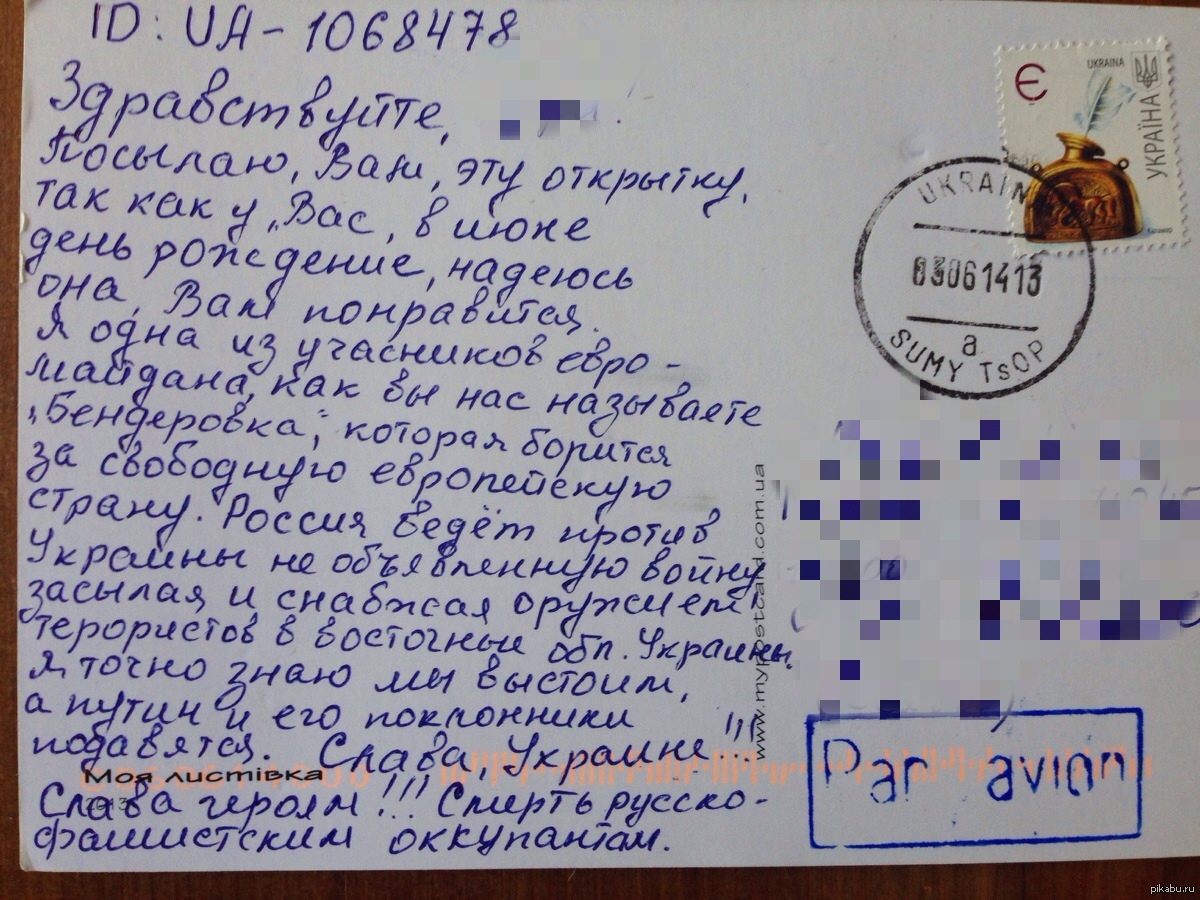 ID: UA-1068478
Здравствуйте,
Посылаю, Вам, эту открытку,
так как у, Вас, в июне
день рождение, надеюсь
она, Вам понравится.
Я одна из учасников евро-
майдана, как вы нас называете
"Бендеровка", которая борится
за свободную европейскую
страну. Россия ведёт против
Украины не объявленную войну
засылая и снабжая оружием
терористов в восточные обл. Украины.
Я точно знаю мы выстоим,
а путин и его поклонники
подавятся. Слава, Украине!!!
Моя листівка
2013
Слава героям!!! Смерть русско-
фашистским оккупантам.
www.mypostcard.com.ua
Є
UKRAINA
УКРАЇНА
UKRAIN
03061413
a
SUMY TsOP
Par avion
pikabu.ru